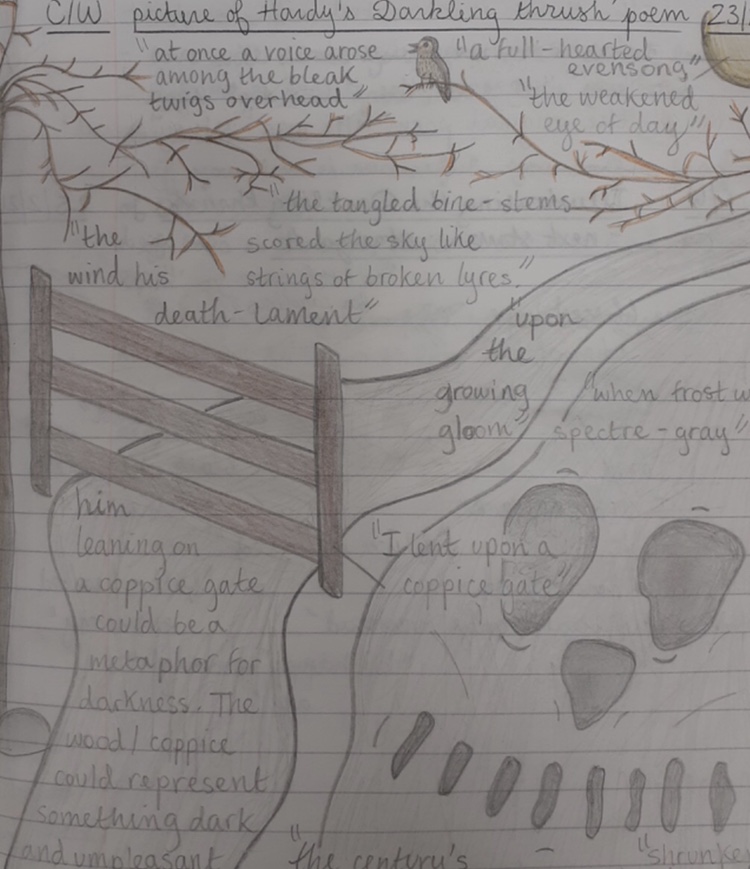 C/W picture of Hardy's Darkling thrush poem 23/
"at once a voice arose
among the bleak
twigs overhead"
"a full-hearted
evensong"
"the weakened
eye of day"
"the tangled bine-stems
scored the sky like
strings of broken lyres."
"the
wind his
death-lament"
"upon
the
growing
gloom"
"when frost w
spectre-gray"
"I lent upon a
coppice gate"
him
leaning on
a coppice gate
could be a
metaphor for
darkness. The
wood/coppice
could represent
something dark
and unpleasant
"the century's
"shrunke